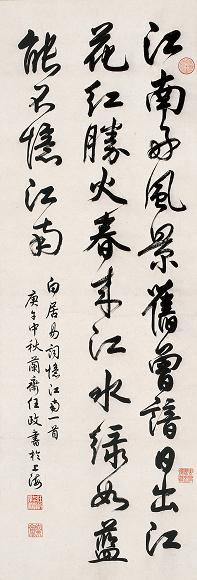 江南好風景舊曾諳日出江
花紅勝火春来江水緑如藍
能不憶江南
白居易詞憶江南一首
庚午中秋蘭齋任政書於上海